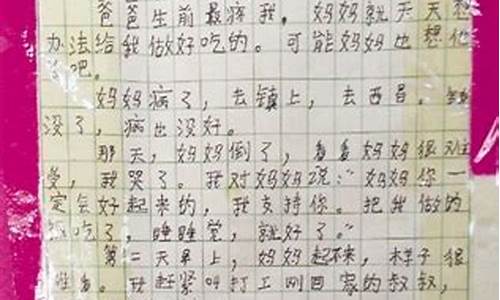 爸爸生前最疼我，妈妈就天天想
办法给我做好吃的。可能妈妈也想他
了吧。
妈妈病了，去镇上，去西昌。钱
没了，病也没好。
那天，妈妈倒了，看看妈妈很难
受，我哭了。我对妈妈说：“妈妈你一
定会好起来的，我支持你。把我做的
饭吃了，睡睡觉，就好了。”
第二天早上，妈妈起不来，样子很
难看。我赶紧叫打工刚回家的叔叔，